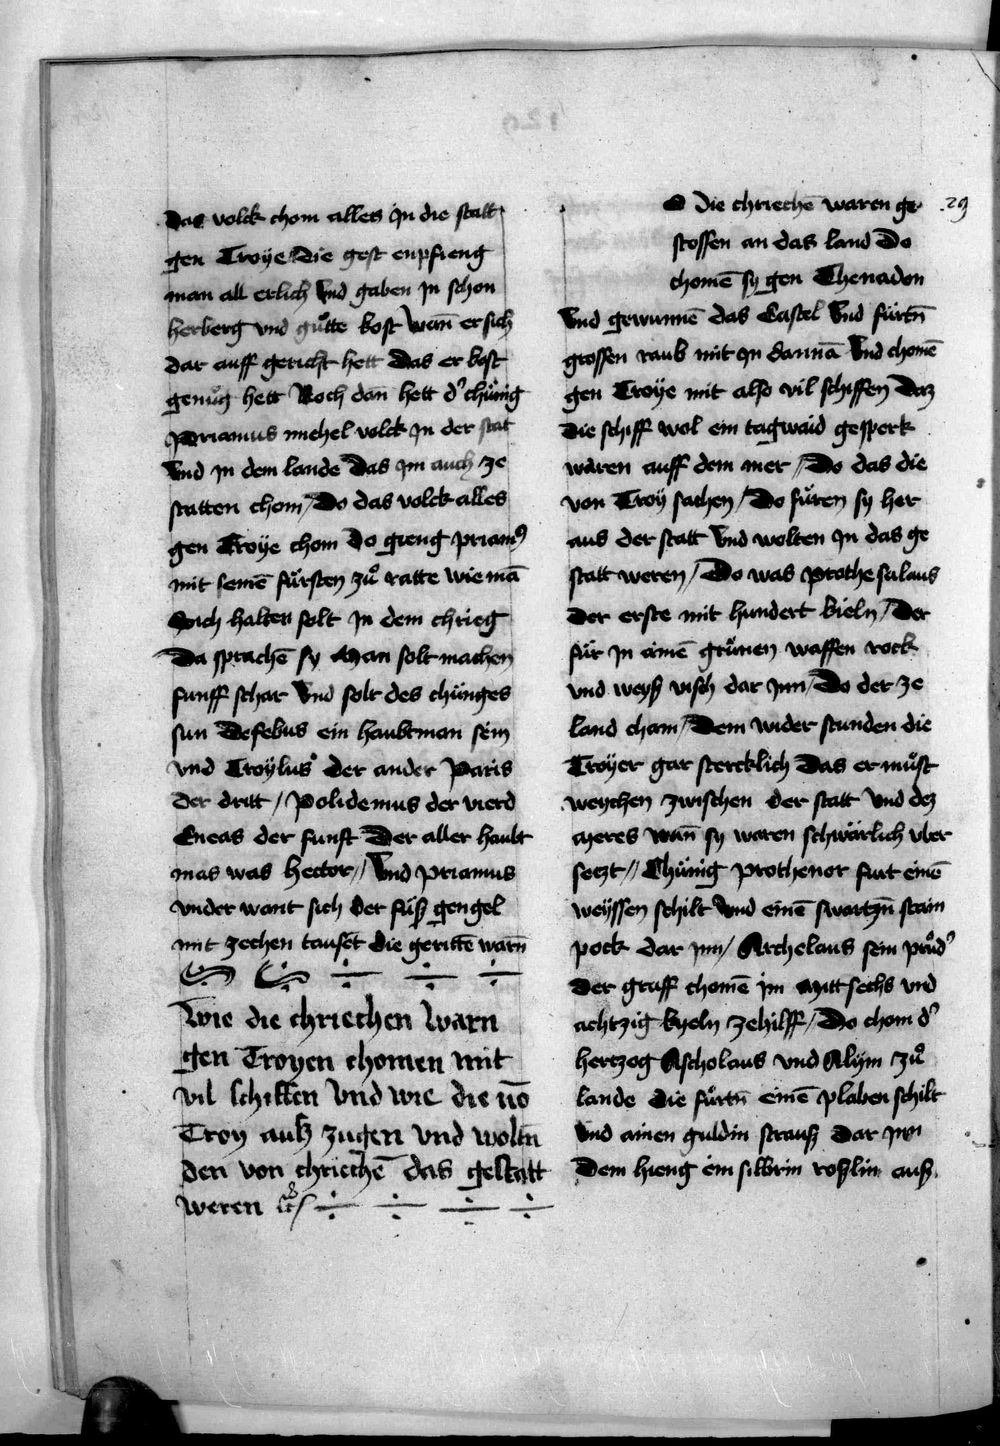 Das volck chom alles jn die statt
gen Troye / die gest enpfieng
man all erlich Vnd gaben jn schon
herberg vnd gůtte kost Wañ er sich
dar auff gericht hett Das er kost
genůg hett Noch dañ hett d' chünig
Priamus michel volck jn der stat
Vnd jn dem lande Das jm auch ze
statten chom / Do das volck alles
gen Troye chom Do gieng priamꝰ
mit seinē fürsten zů ratte wie mā
Sich halten solt jn dem chrieg
Da sprachē sy Man solt machen
funff schar Vnd solt des chünges
sun Defebus ein haubtman sein
vnd Troylus der ander Paris
der dritt / Polidemus der vierd
Eneas der funft Der aller haubt
mas was hector // Vnd priamus
vnder want sich der füß gengel
mit zechen tausēt die geritte warñ
Wie die chriechen Warn
gen Troyen chomen mit
vil schiffen Vnd wie die vō
Troy auß zugen vnd woltñ
den von chriechē das gestatt
weren ꝛc
o die chriechē waren ge
stossen an das land Do
chomē sy gen Thenadon
Vnd gewunnē das Castel Vnd fürtñ
grossen raub mit jn dannā Vnd chomē
gen Troye mit also vil schiffen Daz
die schiff wol ein tagwaid gesperk
waren auff dem mer / Do das die
von Troy sachen / Do fůren sy her
aus der statt Vnd wolten jn das ge
statt weren / Do was prothesalaus
der erste mit hundert kieln / Der
für jn ainē grůnen waffen rock
vnd weyß visch dar jnn / Do der ze
land cham / Dem wider stunden die
Troyer gar stercklich Das er můst
weychen zwischen der statt vnd dez
meres wañ sy waren schwärlich vber
seczt // Chünig prothenor furt einē
weyssen schilt Vnd einē swartzñ stain
pock dar jnn / Archelaus sein průd'
der graff chomē jm mitt sechs vnd
achtzig kyeln ze hilff / Do chom d'
hertzog Ascholaus vnd Alym zů
lande die fůrtñ einē plaben schilt
Vnd ainen guldin strauß dar jnn
Dem hieng ein silbrin rosßlin auß
29